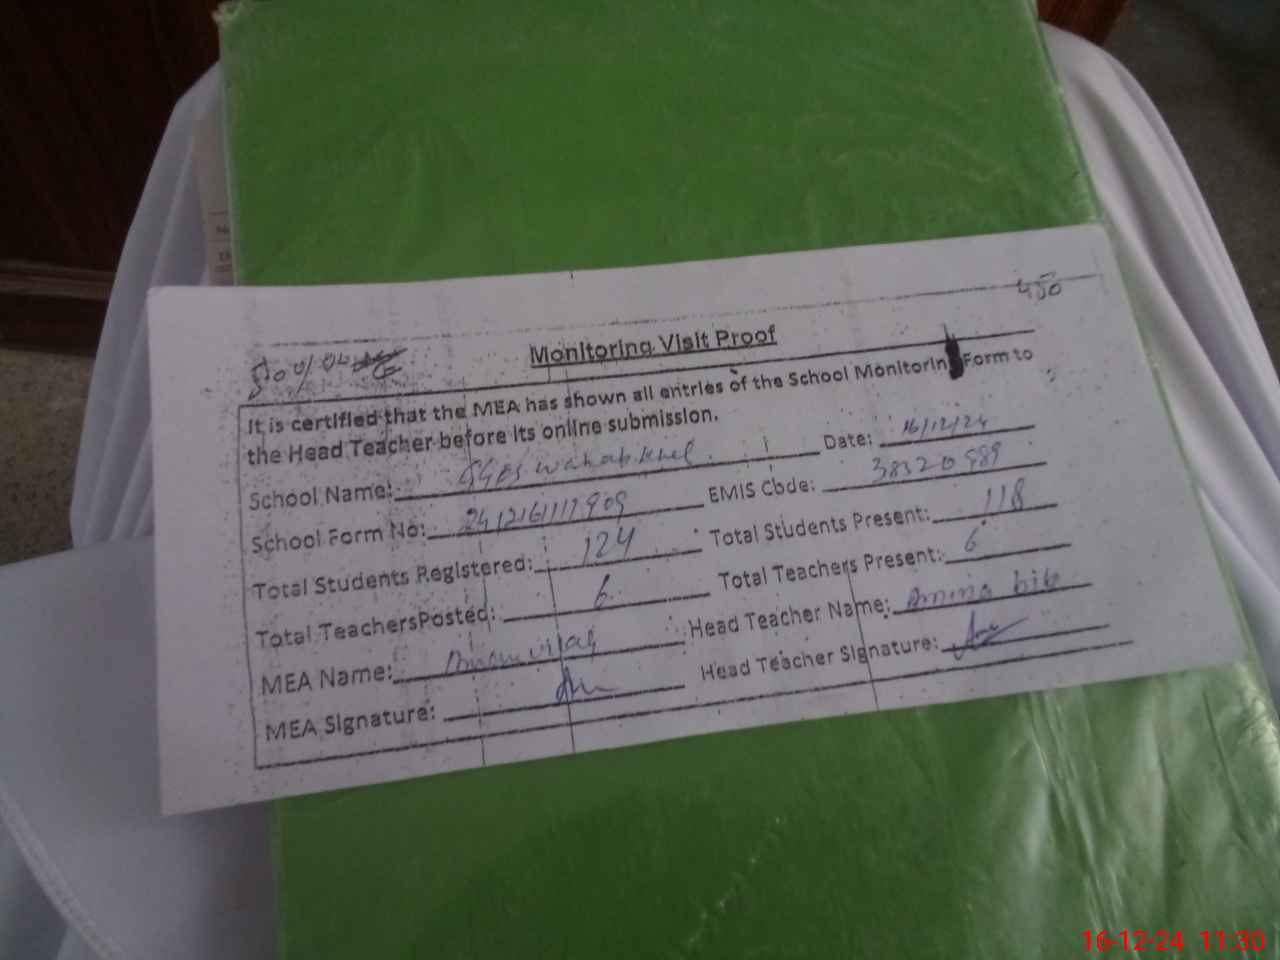 450
Monitoring Visit Proof
It is certified that the MEA has shown all entries of the School Monitoring Form to
the Head Teacher before its online submission.
School Name: GGPS wahab khel Date: 16/12/24
School Form No: 24121611909 EMIS Code: 38320989
Total Students Registered: 124 Total Students Present: 118
Total TeachersPosted: 6 Total Teachers Present: 6
MEA Name: Head Teacher Name: Amina bibi
MEA Signature: Head Teacher Signature:
16-12-24 11:30